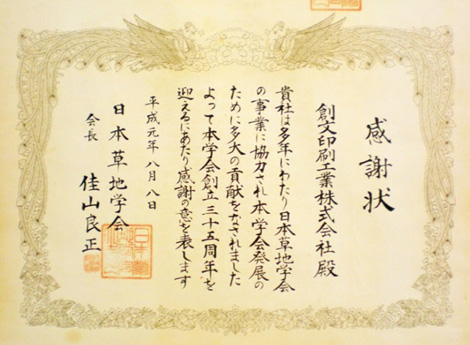 感謝状
創文印刷工業株式会社殿
貴社は多年にわたり日本草地学会
の事業に協力され本学会発展の
ために多大の貢献をなされました
よって本学会創立三十五周年を
迎えるにあたり感謝の意を表します
平成元年八月八日
日本草地学会
会長 佳山良正